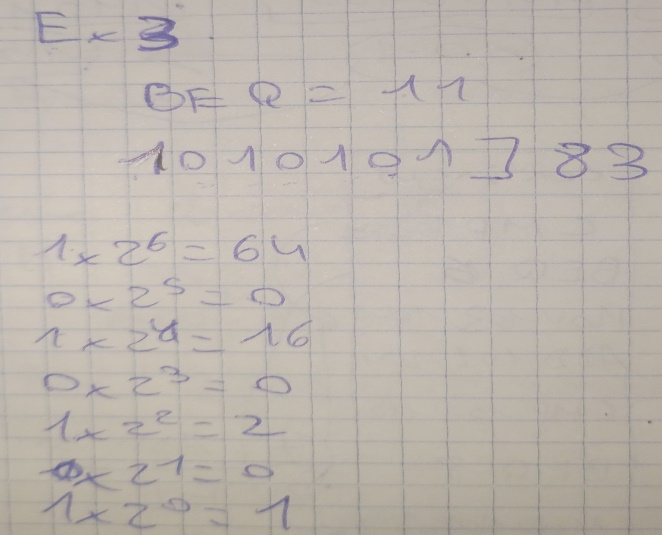 Ex 3
BF Q = 11
1010101] 83
1 x 2^6 = 64
0 x 2^5 = 0
1 x 2^4 = 16
0 x 2^3 = 0
1 x 2^2 = 2
0 x 2^1 = 0
1 x 2^0 = 1